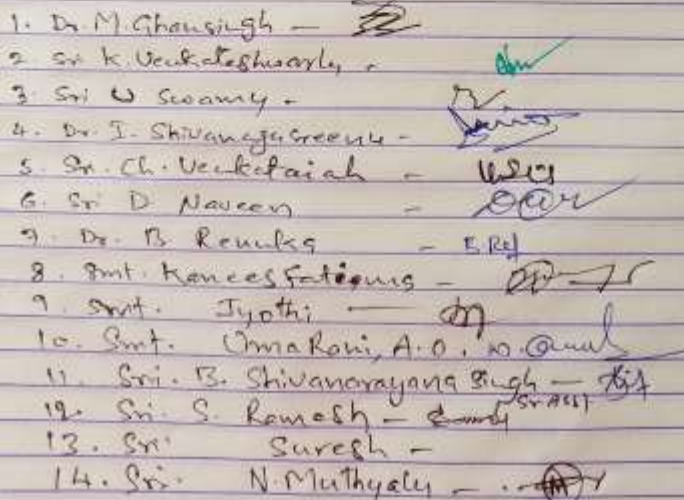 1. Dr. M. Ghansingh -
2 Sri K. Venkateshwarlu -
3. Sri U Swamy -
4. Dr. I. Shivanagasreenu -
5. Sri. Ch. Venkataiah -
6. Sri D Naveen -
7. Dr. B Renuka -
8. Smt. Kanees Fatima -
9. Smt. Jyothi -
10. Smt. Uma Rani, A.O.
11. Sri. B. Shivanarayana Singh -
12. Sri. S. Ramesh - (Sr Asst)
13. Sri Suresh -
14. Sri. N. Muthyalu -